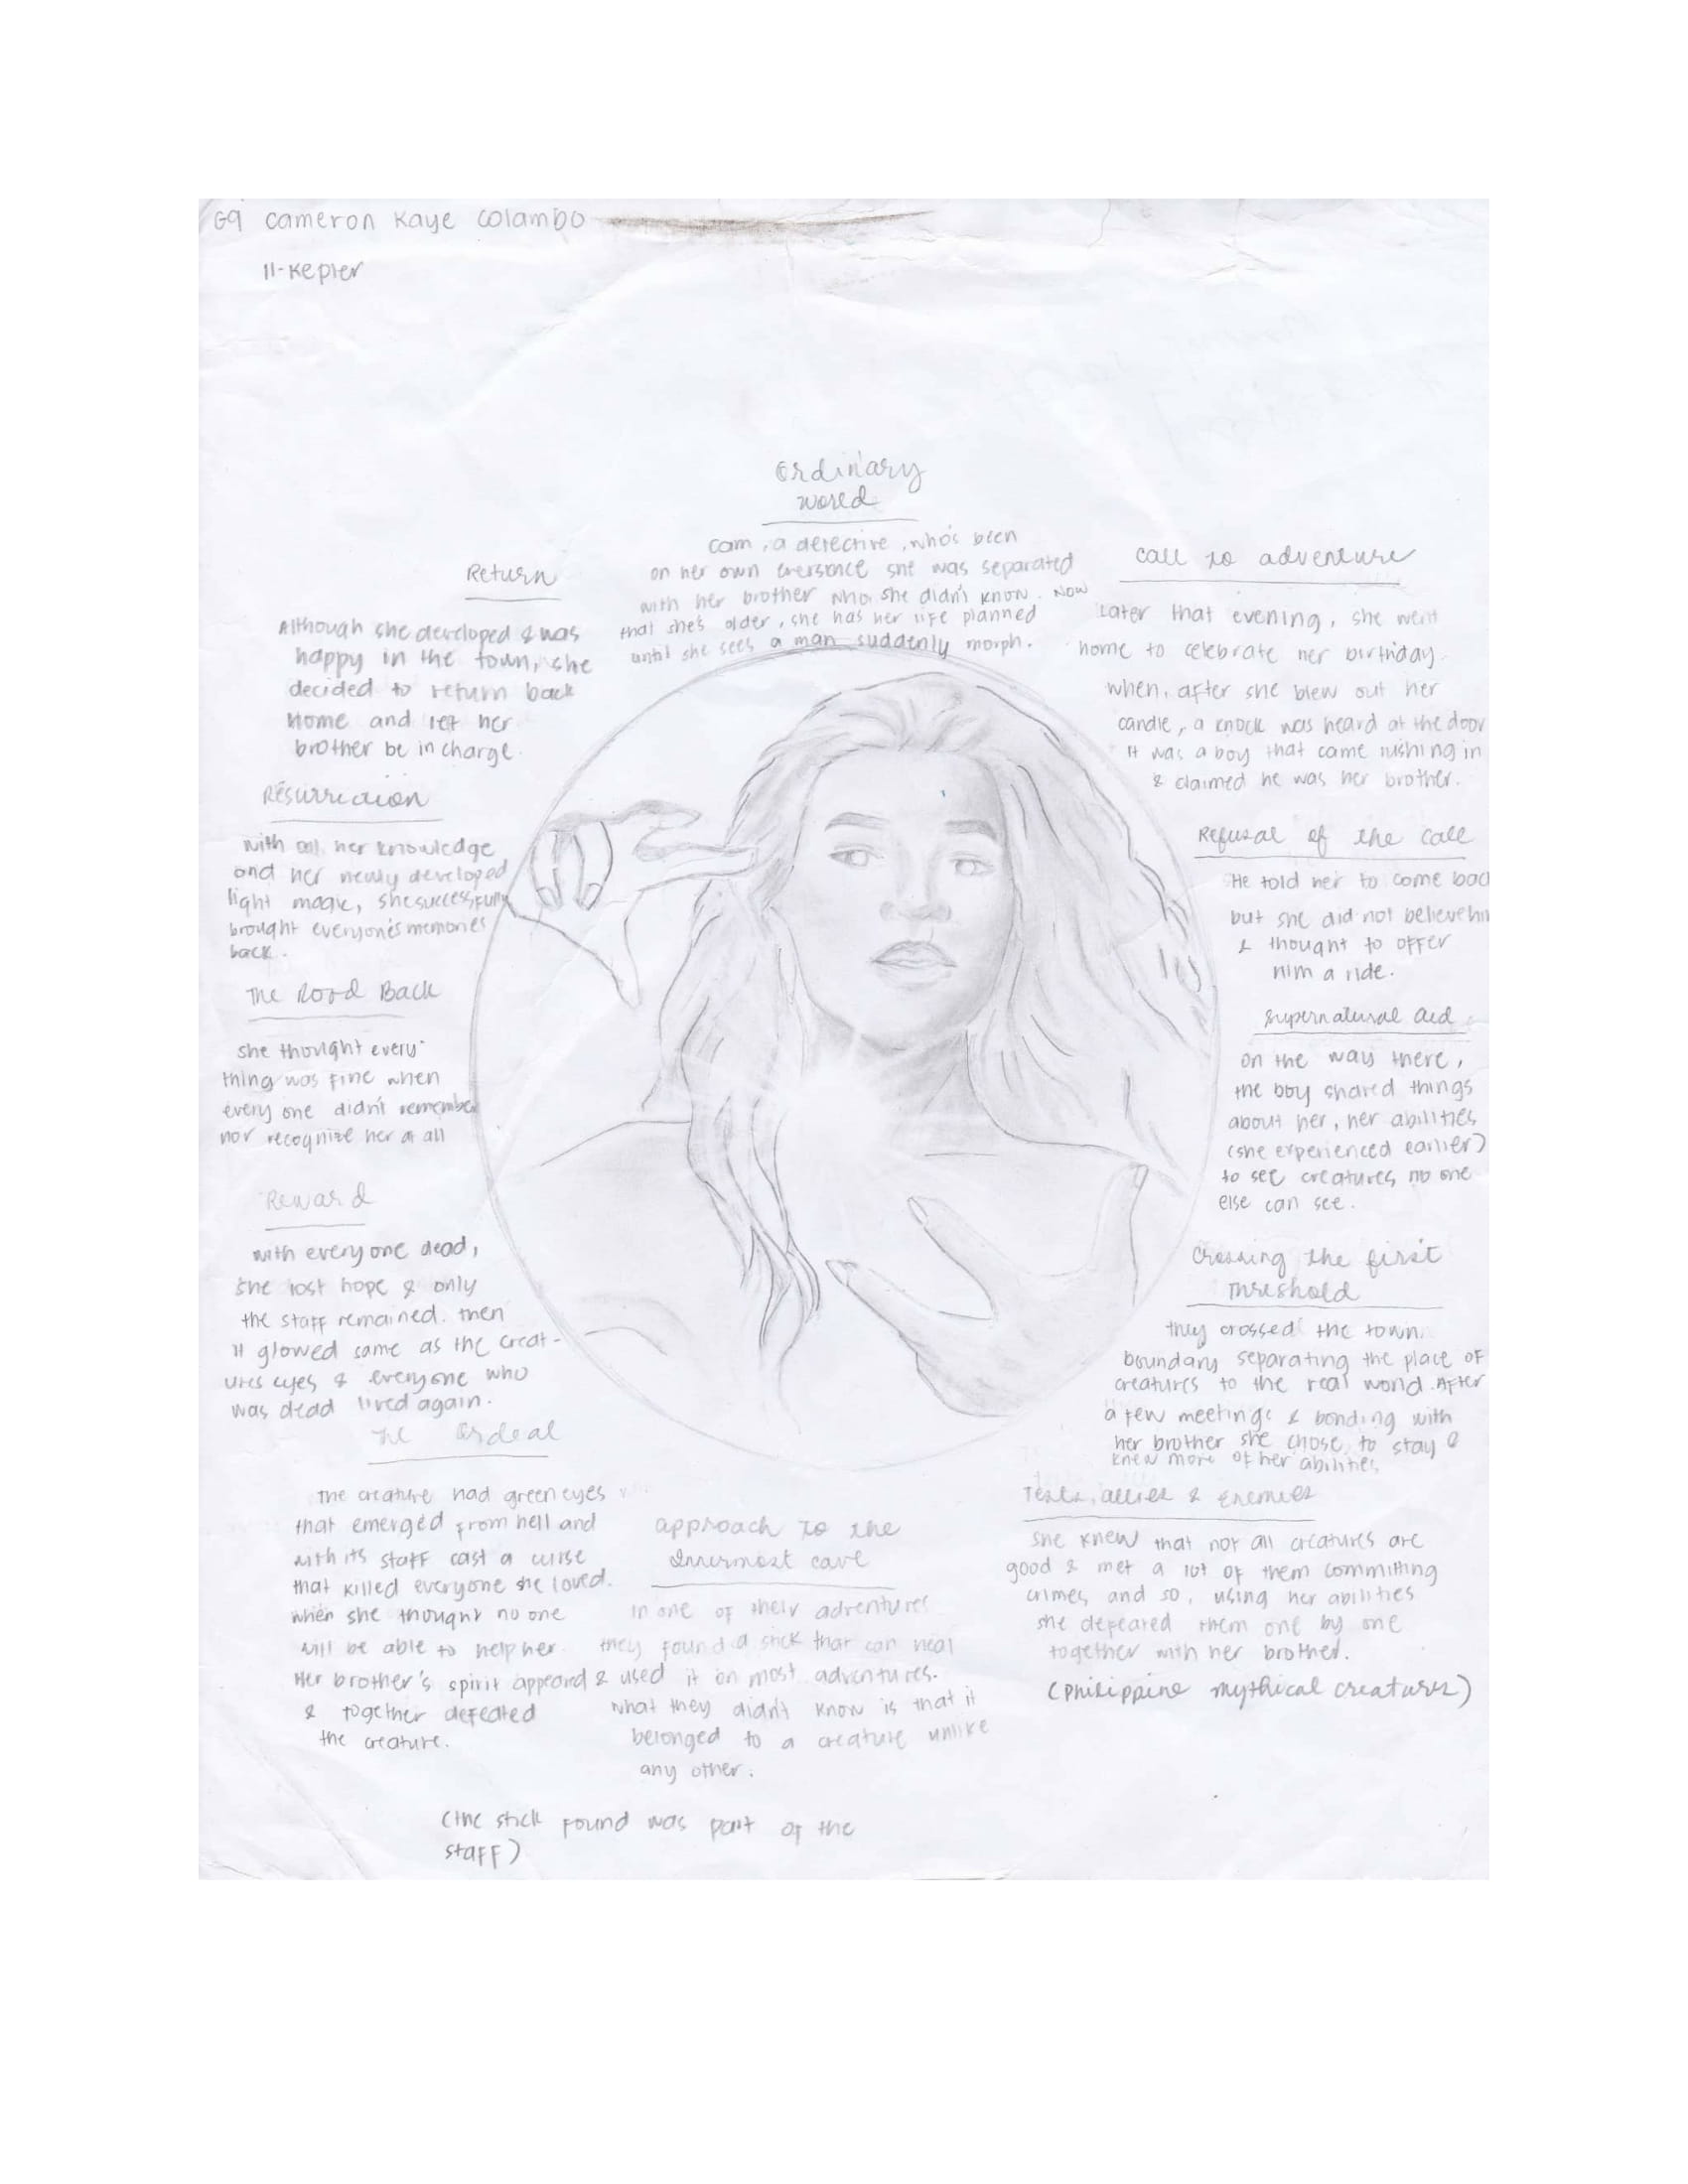 G9 Cameron Kaye Colambo
11-Kepler
Ordinary
World
Cam, a detective, who's been
on her own eversince she was separated
with her brother who she didn't know. Now
that she's older, she has her life planned
until she sees a man suddenly morph.
Call to adventure
Later that evening, she went
home to celebrate her birthday.
when, after she blew out her
candle, a knock was heard at the door
It was a boy that came rushing in
& claimed he was her brother.
Refusal of the call
He told her to come bac
but she did not believe hi
& thought to offer
him a ride.
Supernatural aid
on the way there,
the boy shared things
about her, her abilities
(she experienced earlier)
to see creatures no one
else can see.
Crossing the first
Threshold
they crossed the town
boundary separating the place of
creatures to the real world. After
a few meetings & bonding with
her brother she chose to stay &
knew more of her abilities
Tests, allies & Enemies
She knew that not all creatures are
good & met a lot of them committing
crimes, and so, using her abilities
she defeated them one by one
together with her brother.
(Philippine mythical creatures)
approach to the
Innermost cave
In one of their adventures
they found a stick that can heal
& used it on most adventures.
What they didn't know is that it
belonged to a creature unlike
any other.
(the stick found was part of the
staff)
The Ordeal
The creature had green eyes
that emerged from hell and
with its staff cast a curse
that killed everyone she loved.
when she thought no one
will be able to help her
Her brother's spirit appeared
& together defeated
the creature.
Reward
with everyone dead,
she lost hope & only
the staff remained. then
it glowed same as the creat-
ures eyes & everyone who
was dead lived again.
The Road Back
she thought every
thing was fine when
every one didn't remember
nor recognize her at all
Resurrection
with all her knowledge
and her newly developed
light magic, she successfully
brought everyone's memories
back.
Return
Although she developed & was
happy in the town, she
decided to return back
Home and let her
brother be in charge.